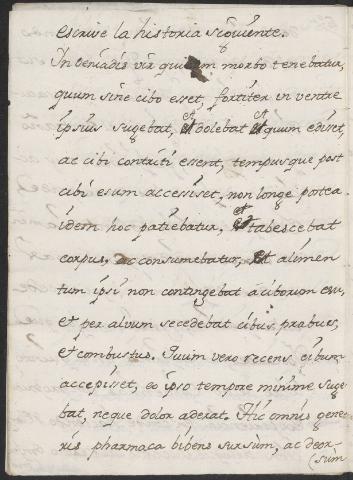 escrive la historia siguiente.
In Oeniadis vir quidam morbo tenebatur,
quum sine cibo esset, fortiter in ventre
ipsius sugebat, et dolebat et quum ediret,
ac cibi contriti essent, tempusque post
cibi esum accessiset, non longe postea
idem hoc patiebatur, et tabescebat
corpus, ac consumebatur, et alimen
tum ipsi non contingebat a ciborum esu,
& per alvum secedebat cibus prabues,
& combustus. Quum vero recens cibum
accepisset, eo ipso tempore minime suge
bat, neque dolor aderat. Hic omnis gene
ris pharmaca bibens sursùm, ac deor-
(sùm